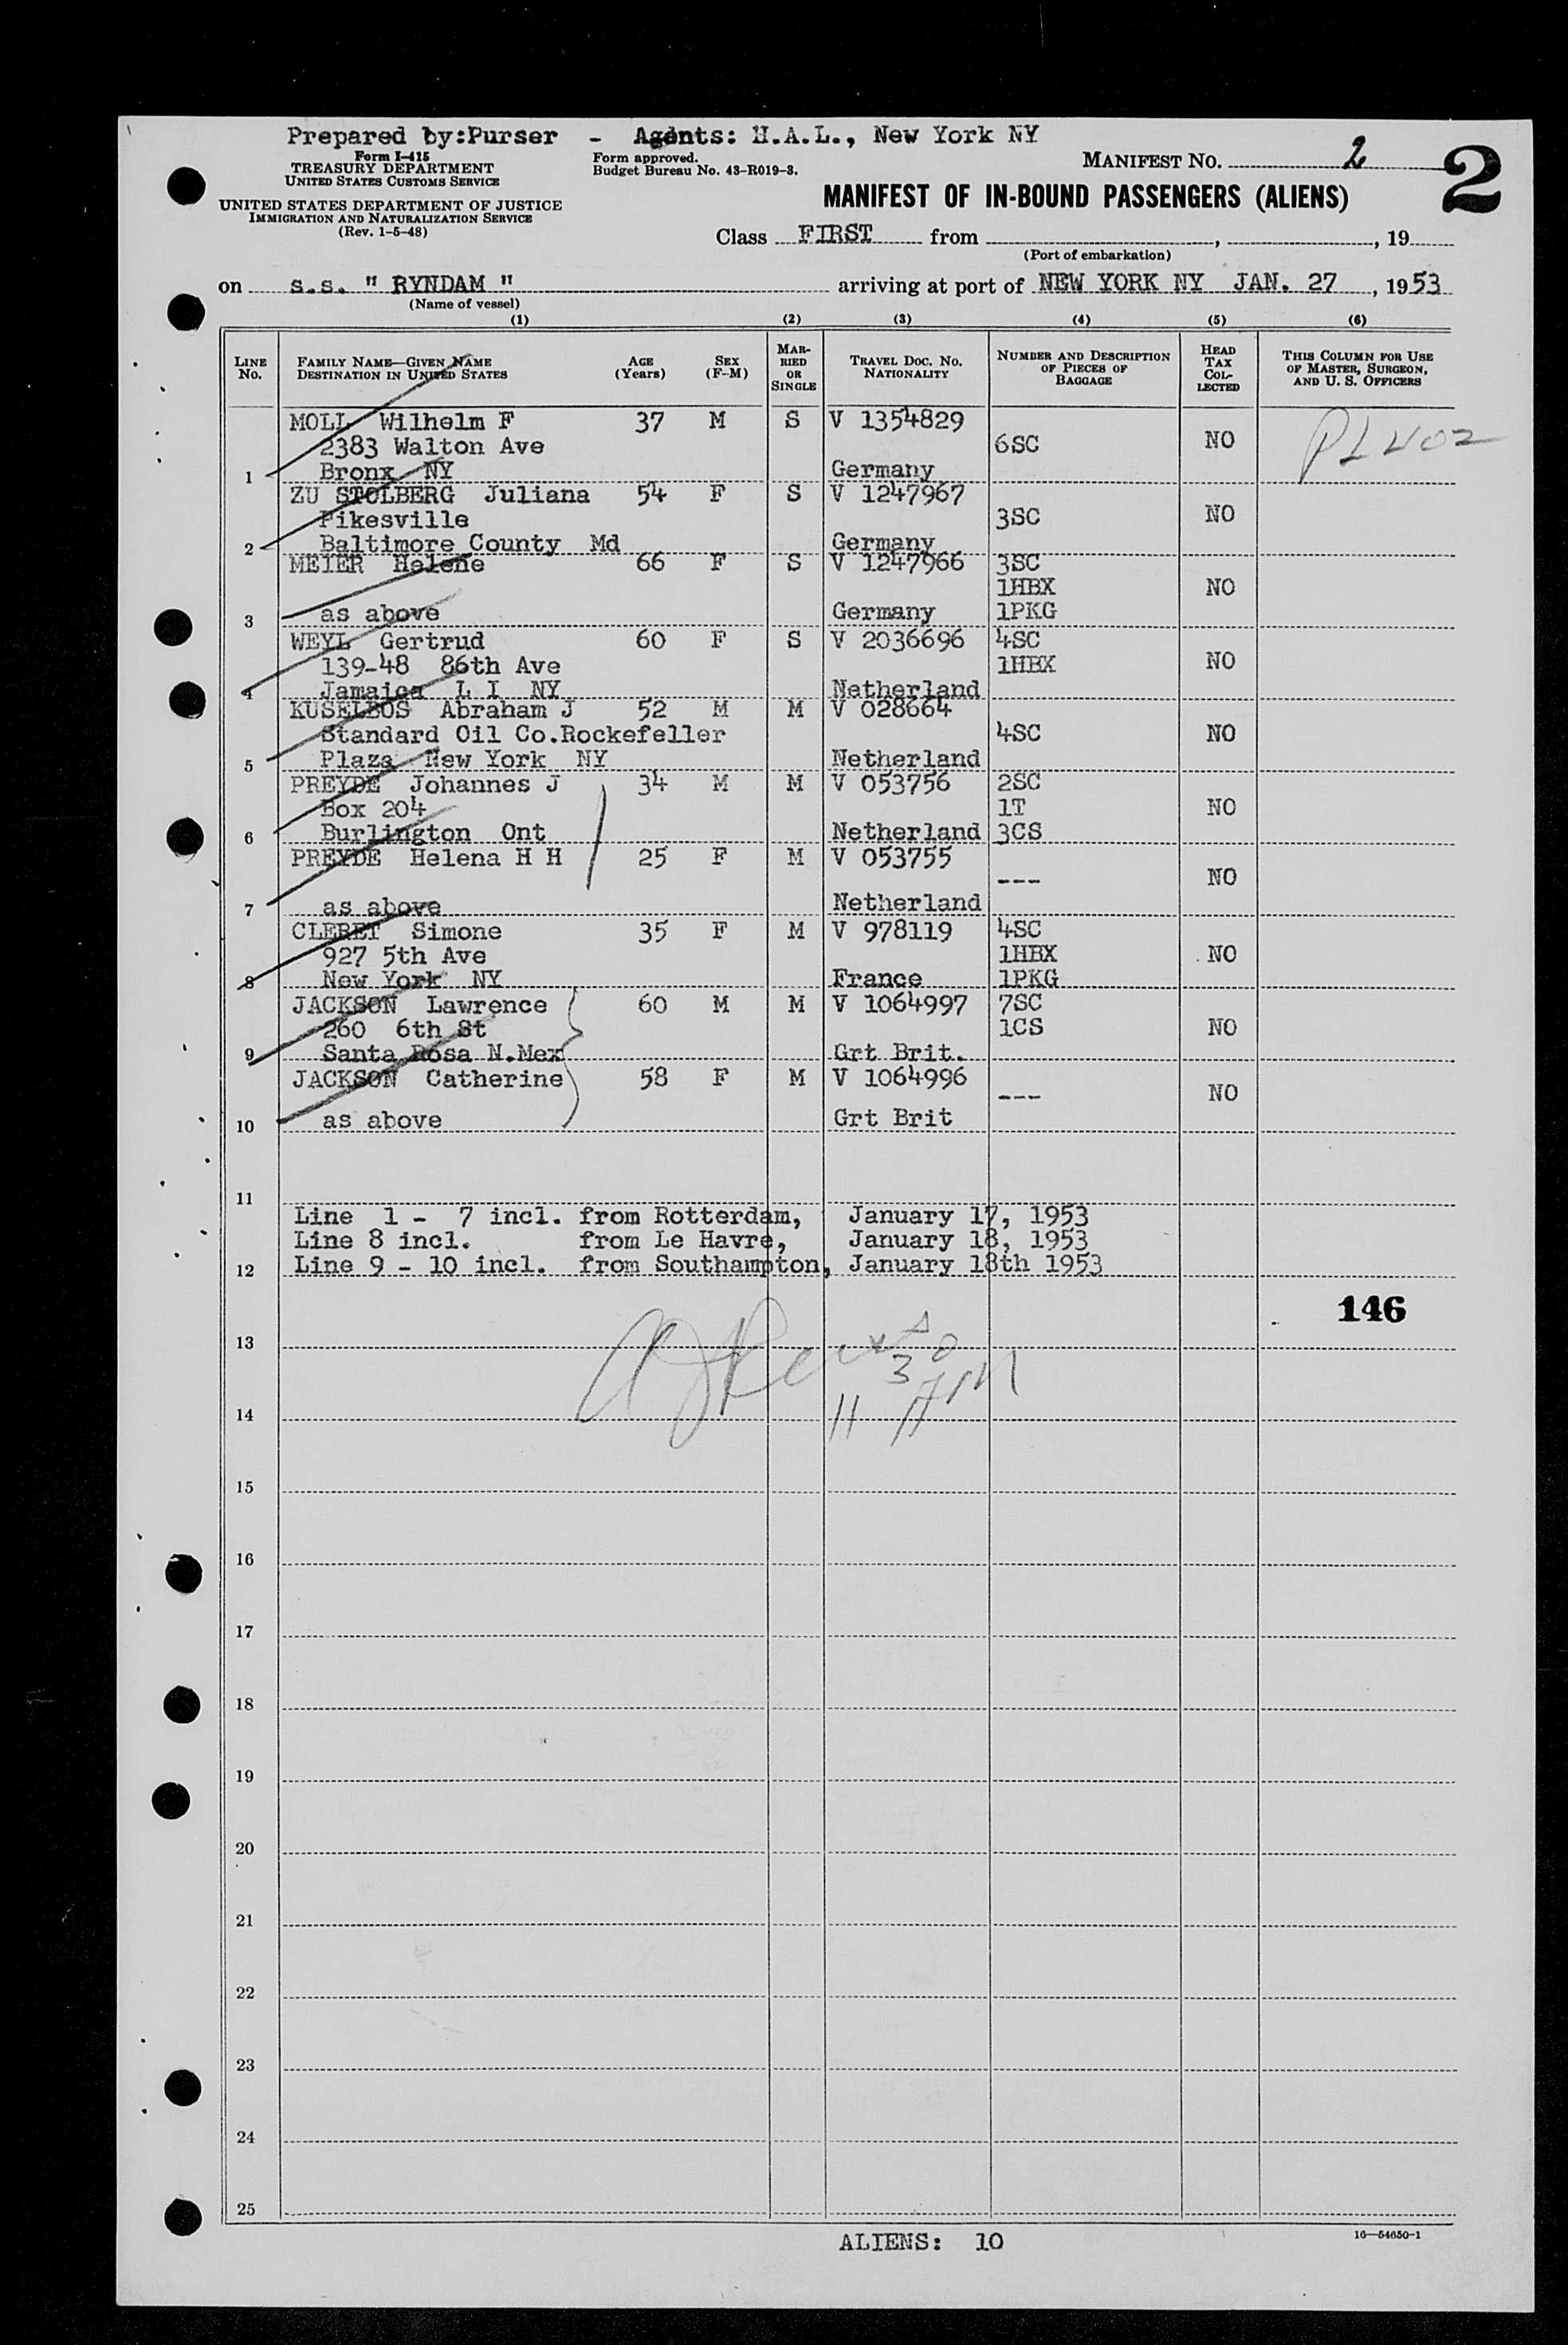 Prepared by:Purser - Agents: H.A.L., New York NY
Form I-415
TREASURY DEPARTMENT
UNITED STATES CUSTOMS SERVICE
Form approved.
Budget Bureau No. 43-R019-3.
MANIFEST NO. 2
2
UNITED STATES DEPARTMENT OF JUSTICE
IMMIGRATION AND NATURALIZATION SERVICE
(Rev. 1-5-48)
MANIFEST OF IN-BOUND PASSENGERS (ALIENS)
Class FIRST from , , 19
(Port of embarkation)
on s.s. " RYNDAM " arriving at port of NEW YORK NY JAN. 27, 1953
(Name of vessel)
(1) (2) (3) (4) (5) (6)
LINE NO.
FAMILY NAME—GIVEN NAME
DESTINATION IN UNITED STATES
AGE
(Years)
SEX
(F-M)
MAR-
RIED
OR
SINGLE
TRAVEL DOC. NO.
NATIONALITY
NUMBER AND DESCRIPTION
OF PIECES OF
BAGGAGE
HEAD
TAX
COL-
LECTED
THIS COLUMN FOR USE
OF MASTER, SURGEON,
AND U. S. OFFICERS
MOLL Wilhelm F 37 M S V 1354829
2383 Walton Ave 6SC NO
1 Bronx NY Germany
ZU STOLBERG Juliana 54 F S V 1247967
Pikesville 3SC NO
2 Baltimore County Md Germany
MEIER Helene 66 F S V 1247966 3SC
1HBX NO
3 as above Germany 1PKG
WEYL Gertrud 60 F S V 2036696 4SC
139-48 86th Ave 1HBX NO
4 Jamaica L I NY Netherland
KUSELBOS Abraham J 52 M M V 028664
Standard Oil Co.Rockefeller 4SC NO
5 Plaza New York NY Netherland
PREYDE Johannes J 34 M M V 053756 2SC
Box 204 1T NO
6 Burlington Ont Netherland 3CS
PREYDE Helena H H 25 F M V 053755
--- NO
7 as above Netherland
CLERET Simone 35 F M V 978119 4SC
927 5th Ave 1HBX NO
8 New York NY France 1PKG
JACKSON Lawrence 60 M M V 1064997 7SC
260 6th St 1CS NO
9 Santa Rosa N.Mex Grt Brit.
JACKSON Catherine 58 F M V 1064996
--- NO
10 as above Grt Brit
11
Line 1 - 7 incl. from Rotterdam, January 17, 1953
Line 8 incl. from Le Havre, January 18, 1953
12 Line 9 - 10 incl. from Southampton, January 18th 1953
146
13
14
15
16
17
18
19
20
21
22
23
24
25
ALIENS: 10
16—54650-1